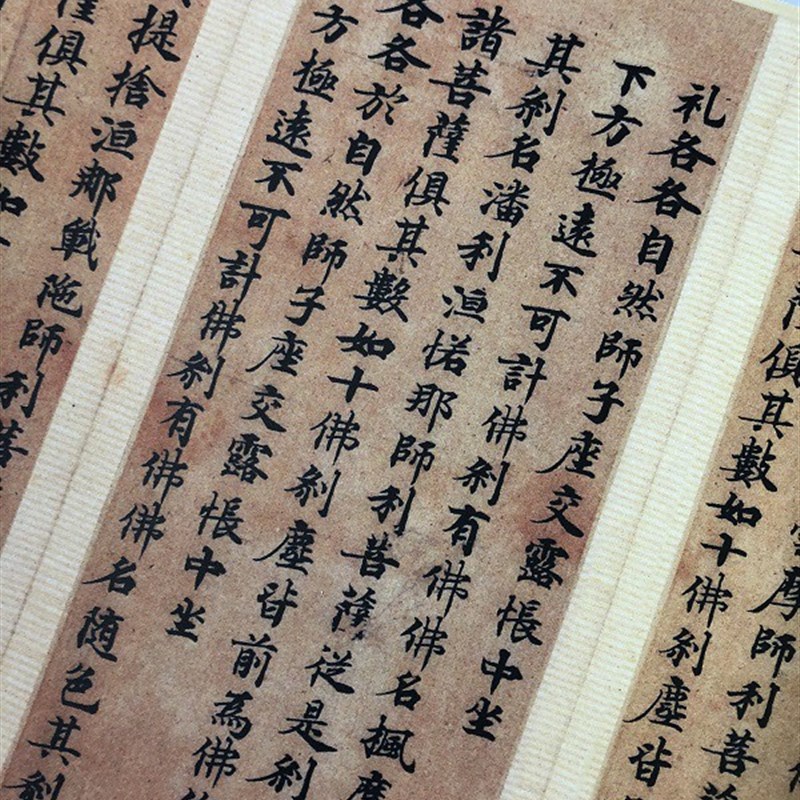 摩師利菩
薩俱其數如十佛刹塵皆
礼各各自然師子座交露帳中坐
下方極遠不可計佛刹有佛佛名楓摩
其刹名潘利洹那師利菩薩從是刹
諸菩薩俱其數如十佛刹塵皆前為佛
各各於自然師子座交露帳中坐
方極遠不可計佛刹有佛佛名随色其刹
提捨洹那戰陁師利菩
薩俱其數如